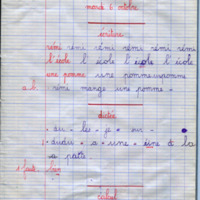 mardi 6 octobre
écriture
rémi rémi rémi rémi rémi rémi
l'école l'école l'école l'école
une pomme une pomme une pomme
a.b. rémi mange une pomme.
dictée
du - les - je - sur -
dudu a une de la
patte
1 faute
calcul